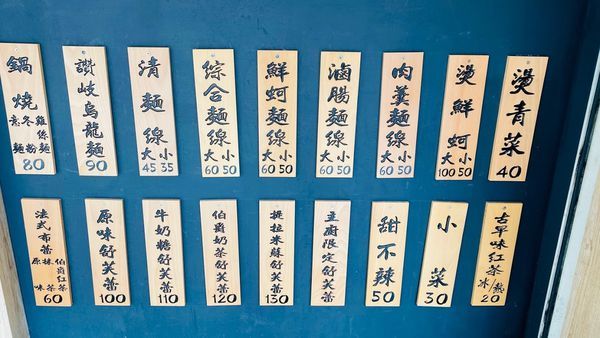 鍋燒
意麵
冬粉
雞絲麵
80
讚岐烏龍麵
90
清麵線
大 小
45 35
綜合麵線
大 小
60 50
鮮蚵麵線
大 小
60 50
滷腸麵線
大 小
60 50
肉羹麵線
大 小
60 50
燙鮮蚵
大 小
100 50
燙青菜
40
法式布蕾
原味
抹茶
伯爵紅茶
60
原味舒芙蕾
100
牛奶糖舒芙蕾
110
伯爵奶茶舒芙蕾
120
提拉米酥舒芙蕾
130
主廚限定舒芙蕾
甜不辣
50
小菜
30
古早味紅茶
冰/熱
20